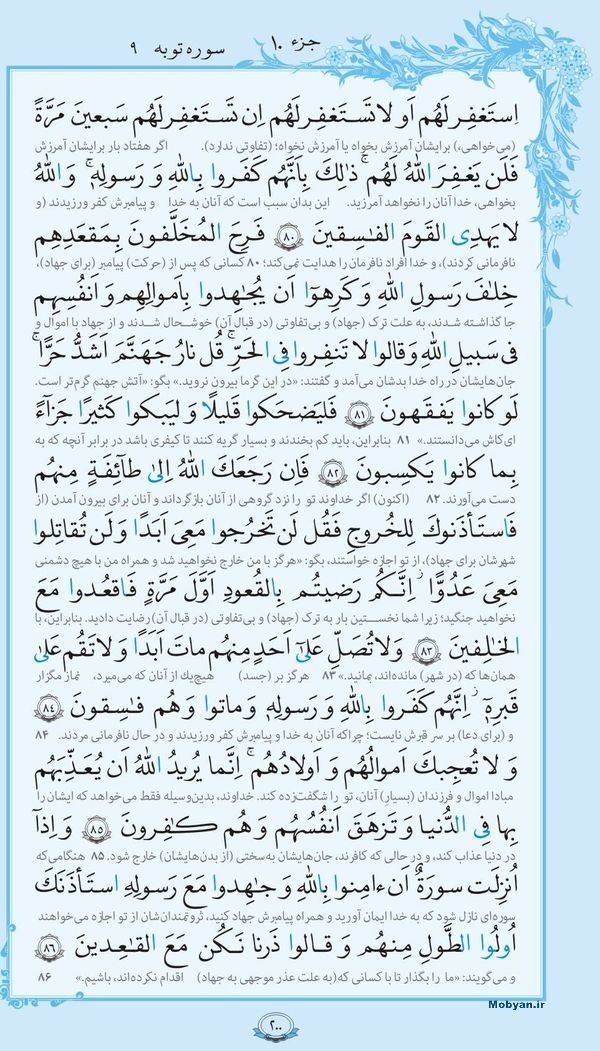 جزء ۱۰
سوره توبه ۹
اِستَغفِر لَهُم اَو لا تَستَغفِر لَهُم اِن تَستَغفِر لَهُم سَبعینَ مَرَّةً
(می‌خواهی،) برایشان آمرزش بخواه یا آمرزش نخواه؛ (تفاوتی ندارد). اگر هفتاد بار برایشان آمرزش
فَلَن یَغفِرَ اللهُ لَهُم ۚ ذٰلِكَ بِاَنَّهُم كَفَروا بِاللهِ وَ رَسولِهٖ ۗ وَ اللهُ
بخواهی، خدا آنان را نخواهد آمرزید. این بدان سبب است که آنان به خدا و پیامبرش کفر ورزیدند (و
لا یَهدِی القَومَ الفٰسِقینَ ﴿۸۰﴾ فَرِحَ المُخَلَّفونَ بِمَقعَدِهِم
نافرمانی کردند)، و خدا افراد نافرمان را هدایت نمی‌کند؛ ۸۰ کسانی که پس از (حرکت) پیامبر (برای جهاد)،
خِلٰفَ رَسولِ اللهِ وَ كَرِهوٓا اَن یُجٰهِدوا بِاَموالِهِم وَ اَنفُسِهِم
جا گذاشته شدند، به علت ترک (جهاد) و بی‌تفاوتی (در قبال آن) خوشحال شدند و از جهاد با اموال و
فی سَبیلِ اللهِ وَ قالوا لا تَنفِروا فِی الحَرِّ ۗ قُل نارُ جَهَنَّمَ اَشَدُّ حَرًّا ۚ
جان‌هایشان در راه خدا بدشان می‌آمد و گفتند: «در این گرما بیرون نروید.» بگو: «آتش جهنم گرم‌تر است.
لَو كانوا یَفقَهونَ ﴿۸۱﴾ فَلیَضحَكوا قَلیلًا وَ لیَبكوا كَثیرًا جَزآءً
ای‌کاش می‌دانستند.» ۸۱ بنابراین، باید کم بخندند و بسیار گریه کنند تا کیفری باشد در برابر آنچه که به
بِما كانوا یَكسِبونَ ﴿۸۲﴾ فَاِن رَجَعَكَ اللهُ اِلىٰ طآئِفَةٍ مِنهُم
دست می‌آورند. ۸۲ (اکنون) اگر خداوند تو را نزد گروهی از آنان بازگرداند و آنان برای بیرون آمدن (از
فَاستَأذَنوكَ لِلخُروجِ فَقُل لَن تَخرُجوا مَعِیَ اَبَدًا وَ لَن تُقاتِلوا
شهرشان برای جهاد)، از تو اجازه خواستند، بگو: «هرگز با من خارج نخواهید شد و همراه من با هیچ دشمنی
مَعِیَ عَدُوًّا ۖ اِنَّكُم رَضیتُم بِالقُعودِ اَوَّلَ مَرَّةٍ فَاقعُدوا مَعَ
نخواهید جنگید؛ زیرا شما نخستین بار به ترک (جهاد) و بی‌تفاوتی (در قبال آن) رضایت دادید. بنابراین، با
الخٰلِفینَ ﴿۸۳﴾ وَ لا تُصَلِّ عَلىٰٓ اَحَدٍ مِنهُم ماتَ اَبَدًا وَ لا تَقُم عَلىٰ
همان‌ها که (در شهر) مانده‌اند، بمانید.» ۸۳ هرگز بر (جسد) هیچ‌یک از آنان که می‌میرد، نماز مگزار
قَبرِهٖٓ ۖ اِنَّهُم كَفَروا بِاللهِ وَ رَسولِهٖ وَ ماتوا وَ هُم فٰسِقونَ ﴿۸۴﴾
و (برای دعا) بر سر قبرش نایست؛ چراکه آنان به خدا و پیامبرش کفر ورزیدند و در حال نافرمانی مردند. ۸۴
وَ لا تُعجِبكَ اَموالُهُم وَ اَولادُهُم ۚ اِنَّما یُریدُ اللهُ اَن یُعَذِّبَهُم
مبادا اموال و فرزندان (بسیار) آنان، تو را شگفت‌زده کند. خداوند، بدین‌وسیله فقط می‌خواهد که ایشان را
بِها فِی الدُّنیا وَ تَزهَقَ اَنفُسُهُم وَ هُم كٰفِرونَ ﴿۸۵﴾ وَ اِذآ
در دنیا عذاب کند، و در حالی که کافرند، جان‌هایشان به‌سختی (از بدن‌هایشان) خارج شود. ۸۵ هنگامی‌که
اُنزِلَت سورَةٌ اَن ءامِنوا بِاللهِ وَ جٰهِدوا مَعَ رَسولِهِ استَأذَنَكَ
سوره‌ای نازل شود که به خدا ایمان آورید و همراه پیامبرش جهاد کنید، ثروتمندان‌شان از تو اجازه می‌خواهند
اُولُوا الطَّولِ مِنهُم وَ قالوا ذَرنا نَكُن مَعَ القٰعِدینَ ﴿۸۶﴾
و می‌گویند: «ما را بگذار تا با کسانی که(به علت عذر موجهی به جهاد) اقدام نکرده‌اند، باشیم.» ۸۶
Mobyan.ir
۲۰۰